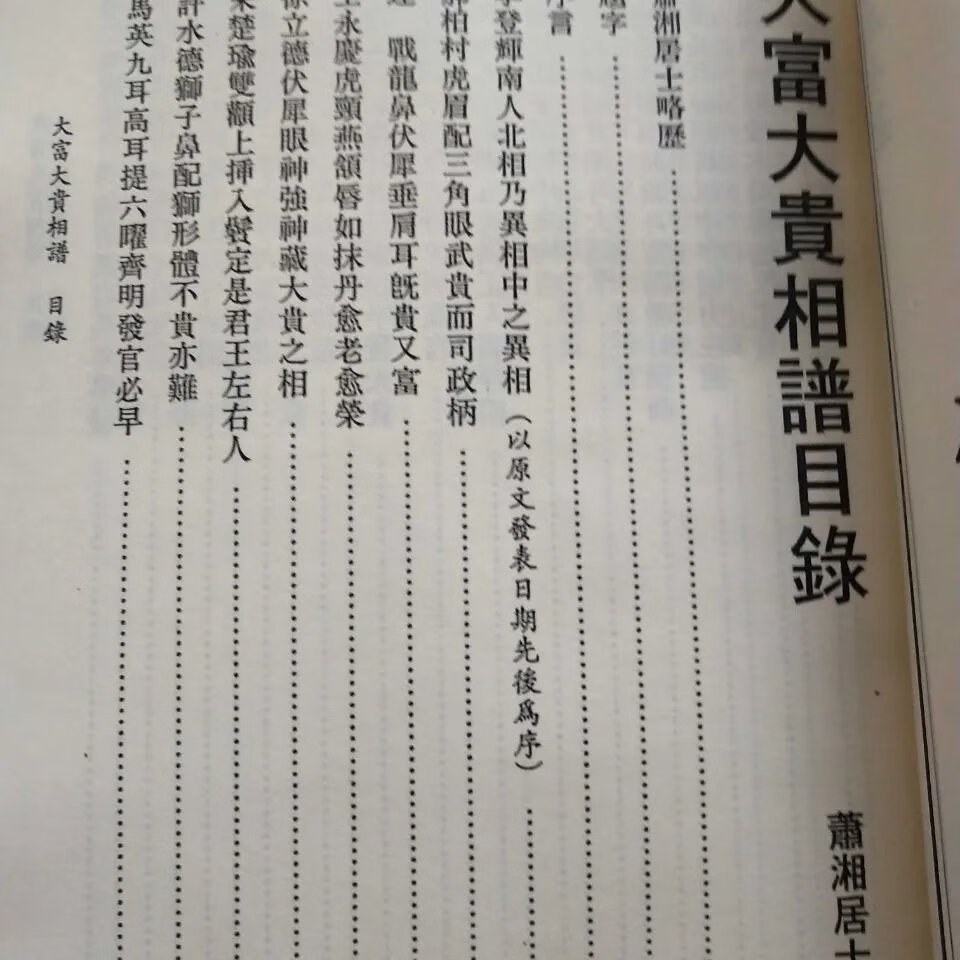 大富大貴相譜目錄
蕭湘居士
蕭湘居士略歷
題字
序言
李登輝南人北相乃異相中之異相(以原文發表日期先後爲序)
郝柏村虎眉配三角眼武貴而司政柄
連 戰龍鼻伏犀垂肩耳旣貴又富
王永慶虎頸燕頷唇如抹丹愈老愈榮
徐立德伏犀眼神強神藏大貴之相
宋楚瑜雙顴上揷入鬢定是君王左右人
許水德獅子鼻配獅形體不貴亦難
馬英九耳高耳提六曜齊明發官必早
大富大貴相譜 目錄